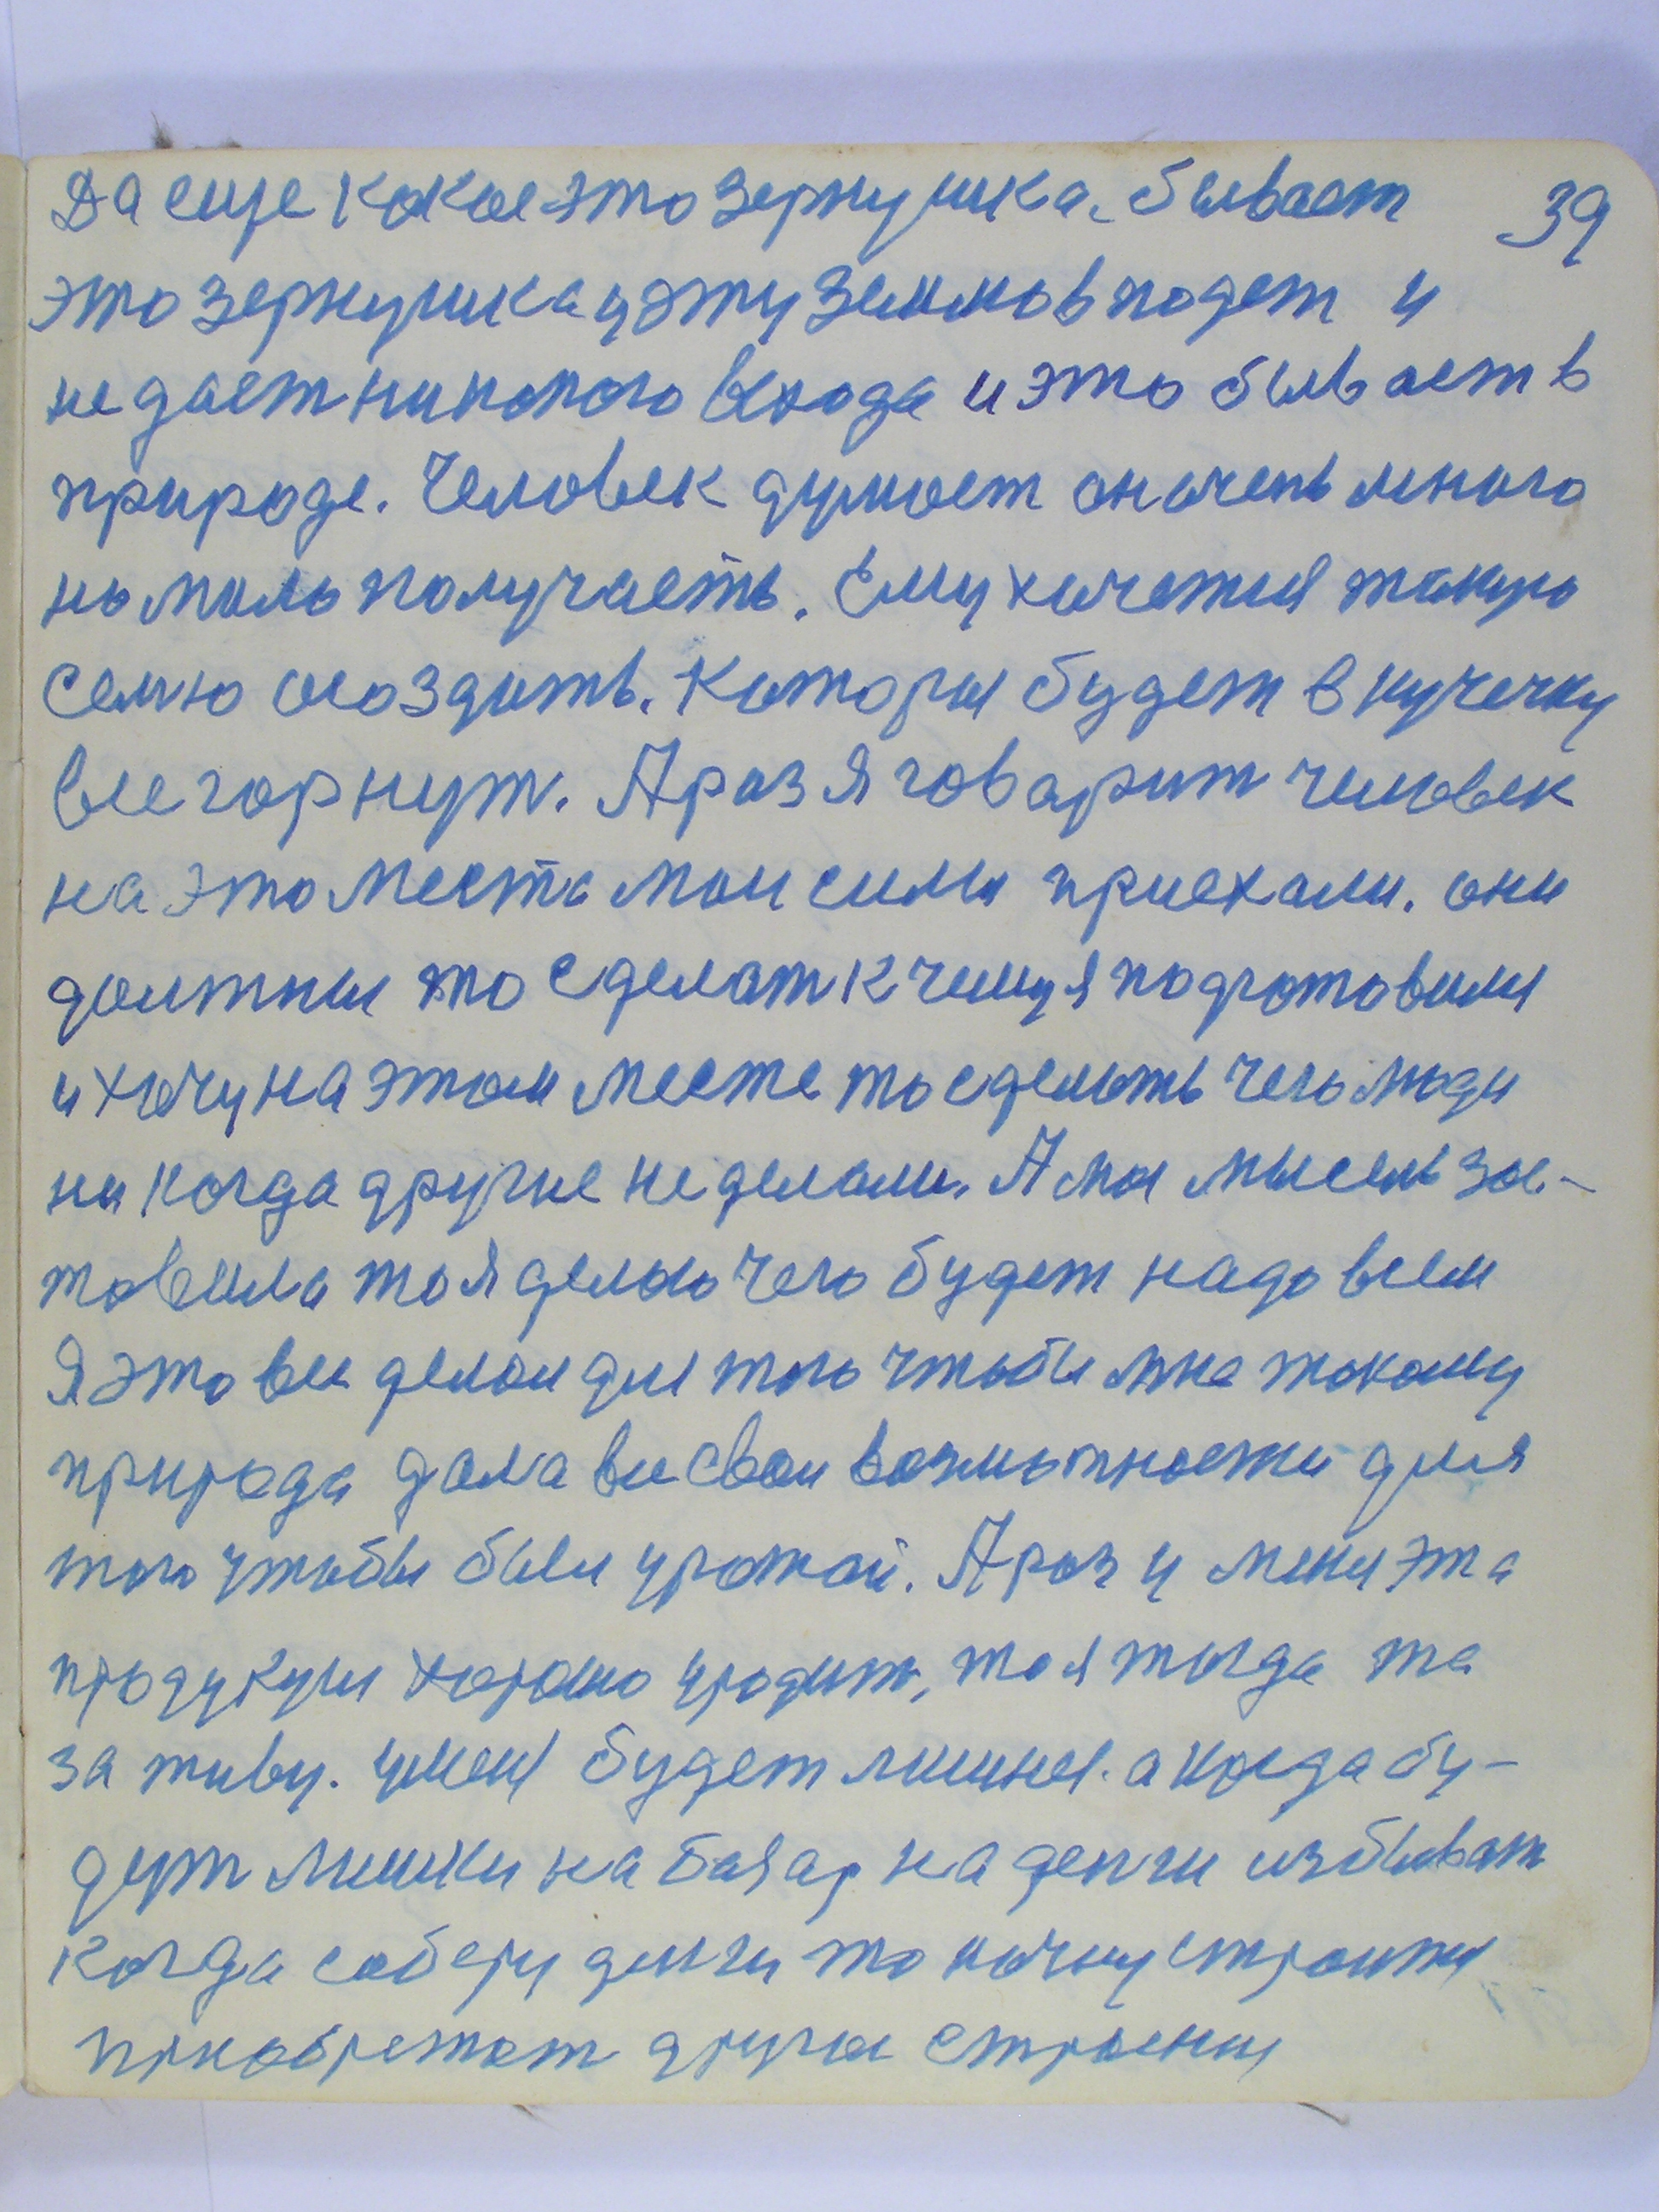 Да еще какое это зернушка. бывает 39
это зернушка у эту землю впадет и
не дает никокого всхода и это бывает в
природе. Человек думает он очень много
но мало получаеть. Ему хочетия такую
семю осоздать. Которы будет в кучечку
все горнут. А раз я говарит человек
на это места мои силы приехали. они
должны то сделат к чему я подготовился
и хочу на этом месте то сделать чего люди
ни когда другие не делали. А мы мысель зас-
тавила то я делаю чего будет надо всем
Я это все делаи для того чтобы мне такому
природа дала все свои возможности для
того чтобы были урожаи. А раз у мени эта
продукция хорошо уродит, то я тогда та
за живу. у меня будет лишнея. а когда бу-
дут лишки на базар на денги избыват
когда соберу денги то начну строится
приобретат другое строения